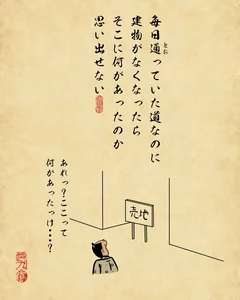 毎日通っていた道なのに
建物がなくなったら
そこに何があったのか
思い出せない
あれっ?ここって
何があったっけ・・・?
売地